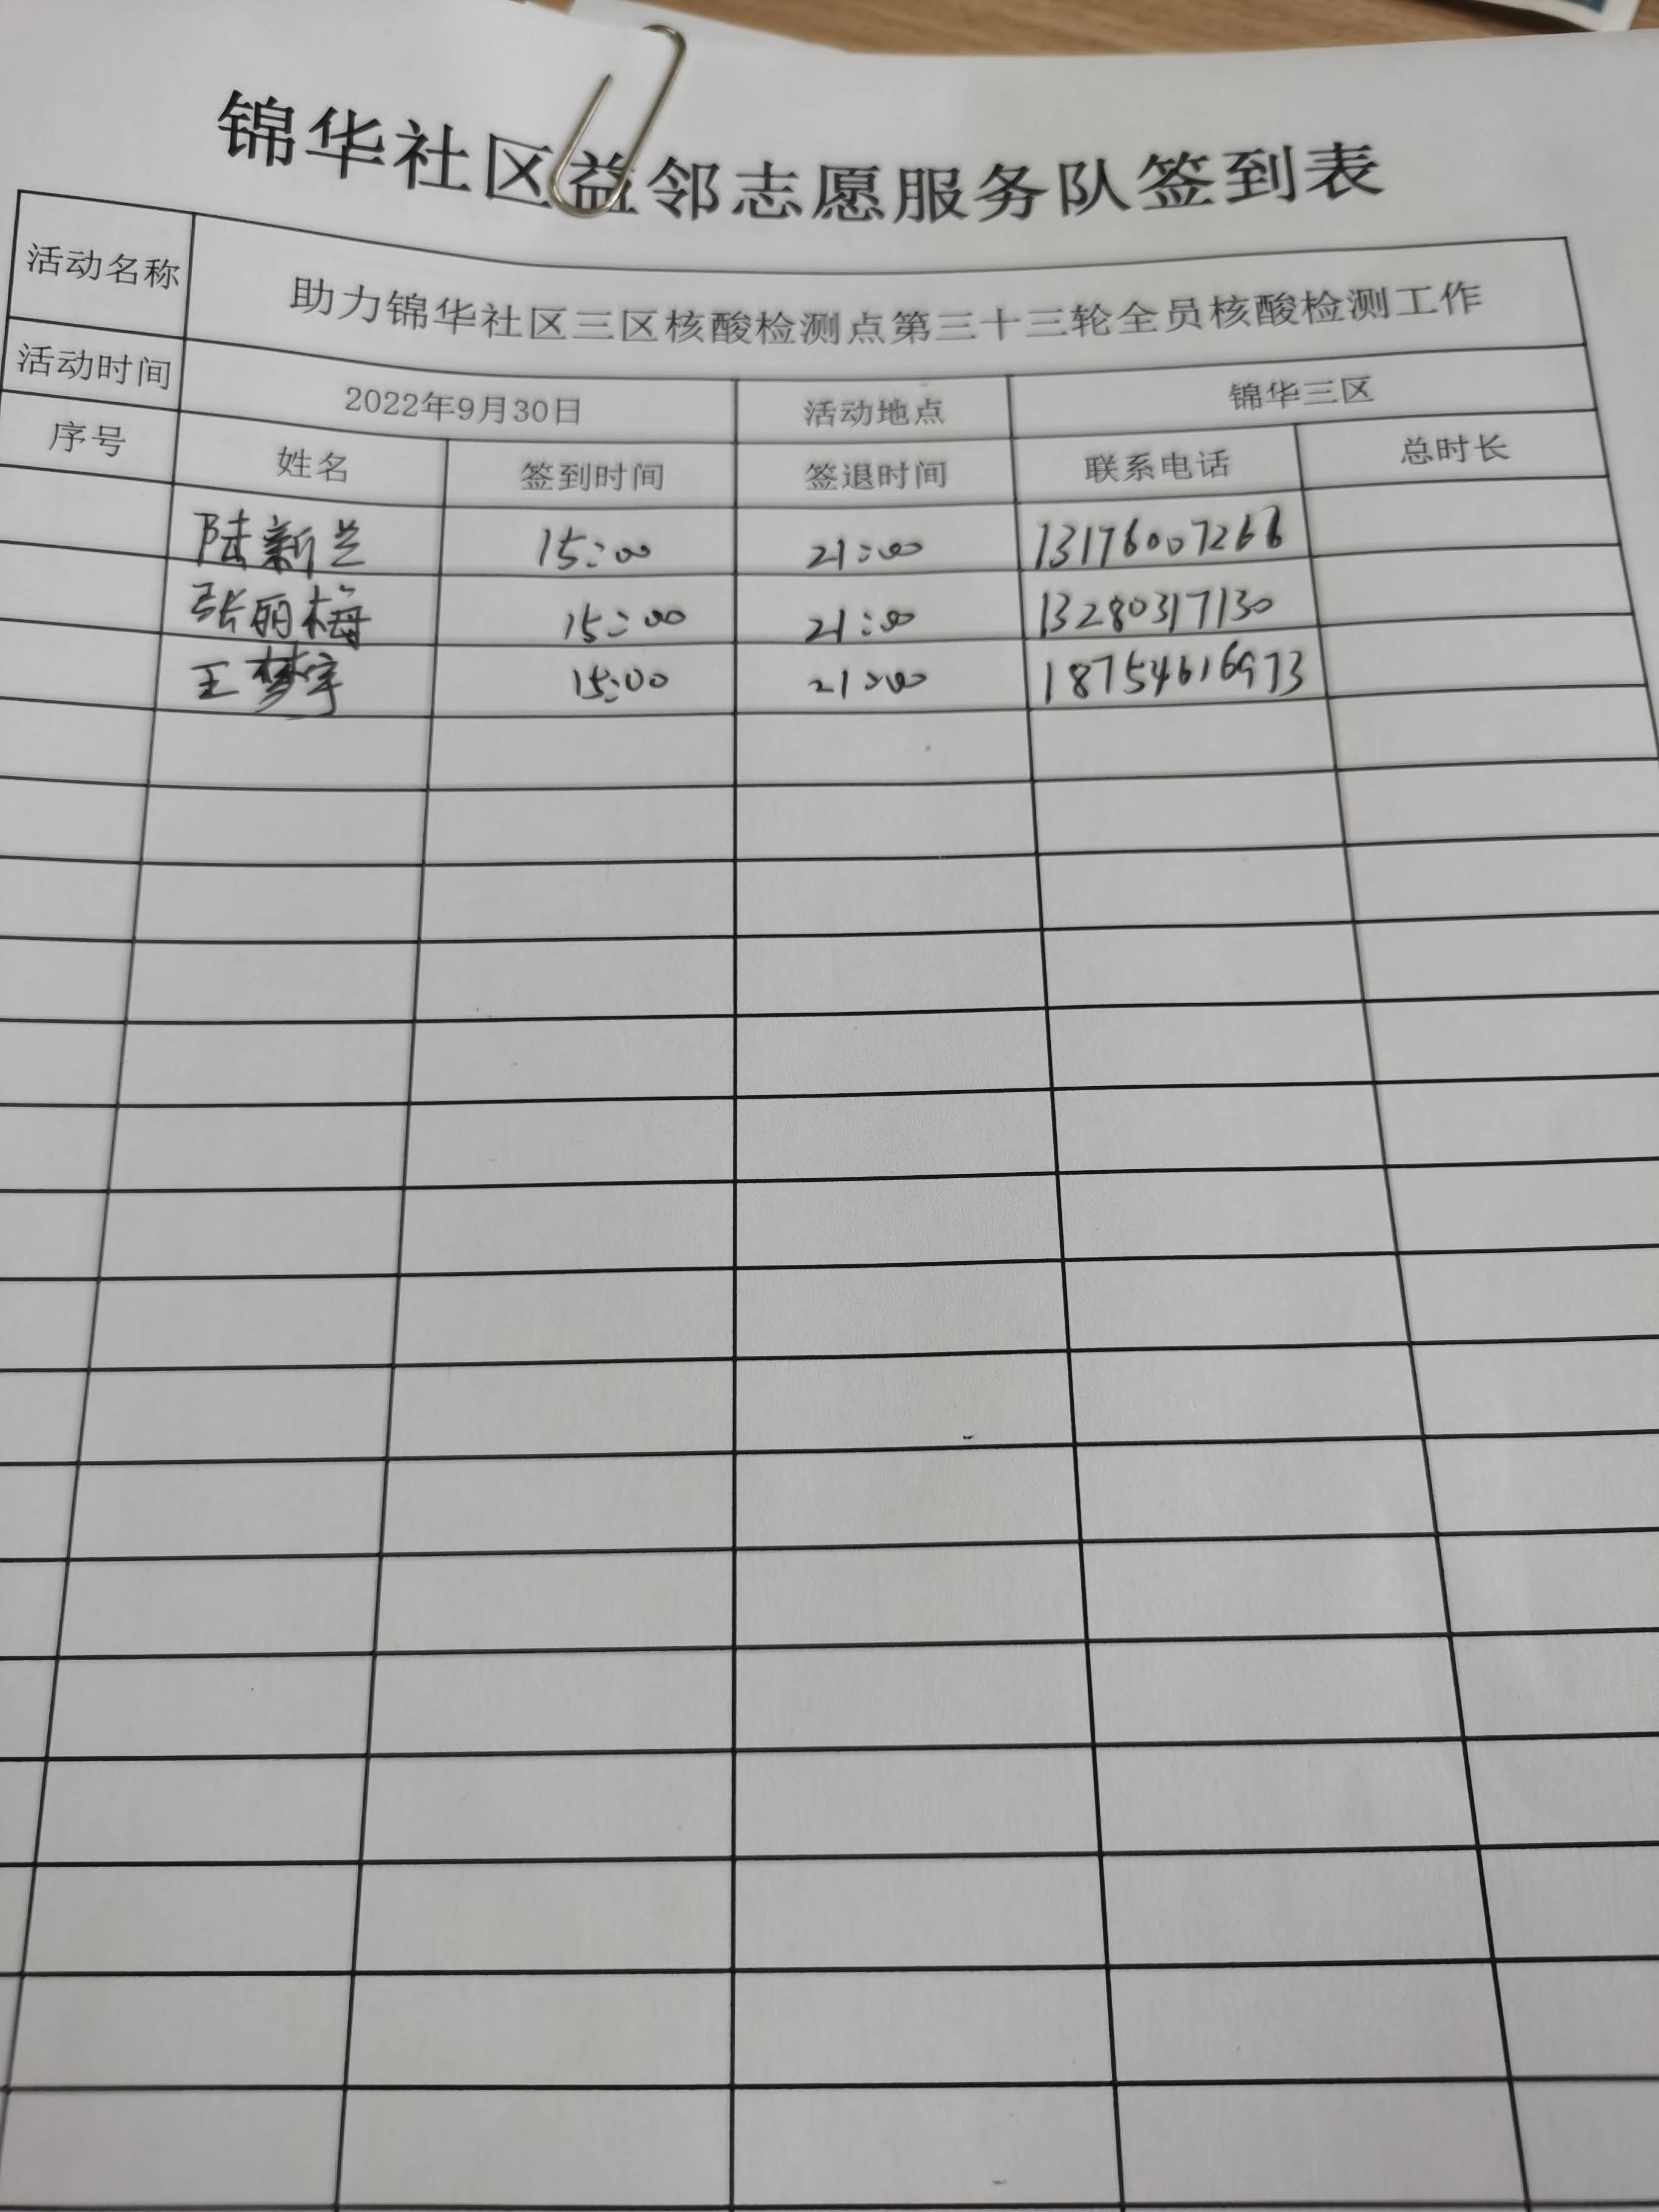 锦华社区益邻志愿服务队签到表
活动名称 助力锦华社区三区核酸检测点第三十三轮全员核酸检测工作
活动时间 2022年9月30日 活动地点 锦华三区
序号 姓名 签到时间 签退时间 联系电话 总时长
陆新兰 15:00 21:00 13176007268
张丽梅 15:00 21:00 13280317130
王梦宇 15:00 21:00 18754616973